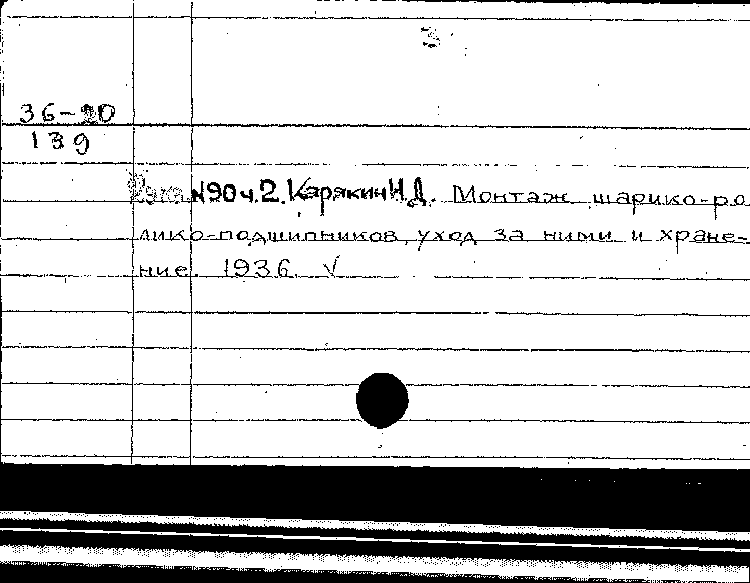 3
36-20
139
№90 ч.2. Карякин Н.Д. Монтаж шарико-ро
лико-подшипников, уход за ними и хране-
ние. 1936. √